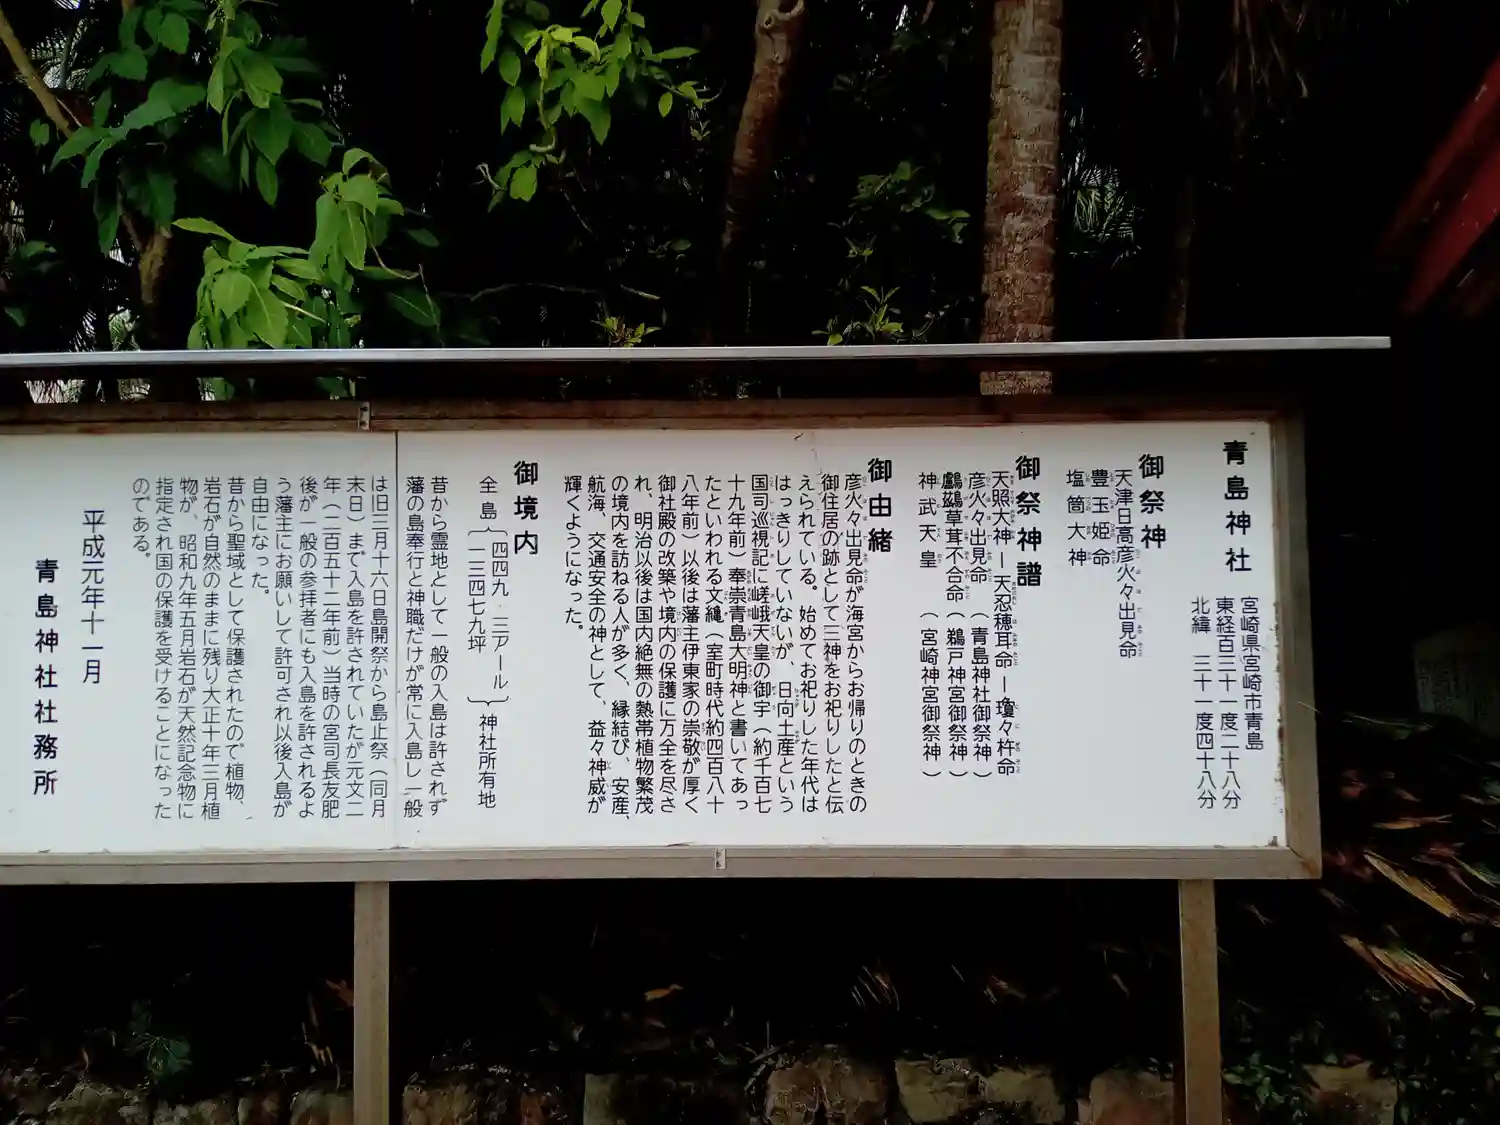 青島神社
宮崎県宮崎市青島
東経百三十一度二十八分
北緯 三十一度四十八分
御祭神
天津日高彦火々出見命
豊玉姫命
塩筒大神
御祭神譜
天照大神―天忍穂耳命―瓊々杵命
彦火々出見命（青島神社御祭神）
鸕鷀草葺不合命（鵜戸神宮御祭神）
神武天皇（宮崎神宮御祭神）
御由緒
彦火々出見命が海宮からお帰りのときの
御住居の跡として三神をお祀りしたと伝
えられている。始めてお祀りした年代は
はっきりしていないが、日向土産という
国司巡視記に嵯峨天皇の御宇（約千百七
十九年前）奉崇青島大明神と書いてあっ
たといわれる文亀（室町時代約四百八十
八年前）以後は藩主伊東家の崇敬が厚く
御社殿の改築や境内の保護に万全を尽さ
れ、明治以後は国内絶無の熱帯植物繁茂
の境内を訪ねる人が多く、縁結び、安産、
航海、交通安全の神として、益々神威が
輝くようになった。
御境内
全島｛四四九・三アール 一三四七九坪｝神社所有地
昔から霊地として一般の入島は許されず
藩の島奉行と神職だけが常に入島し一般
は旧三月十六日島開祭から島止祭（同月
末日）まで入島を許されていたが元文二
年（二百五十二年前）当時の宮司長友肥
後が一般の参拝者にも入島を許されるよ
う藩主にお願いして許可され以後入島が
自由になった。
昔から聖域として保護されたので植物、
岩石が自然のままに残り大正十年三月植
物が、昭和九年五月岩石が天然記念物に
指定され国の保護を受けることになった
のである。
平成元年十一月
青島神社社務所